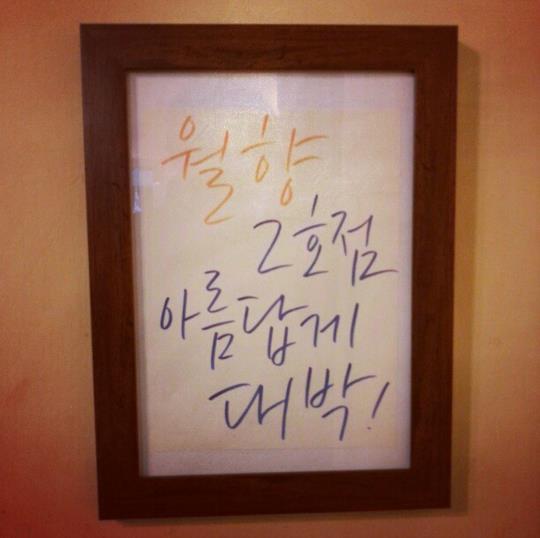 월향
2호점
아름답게
대박!